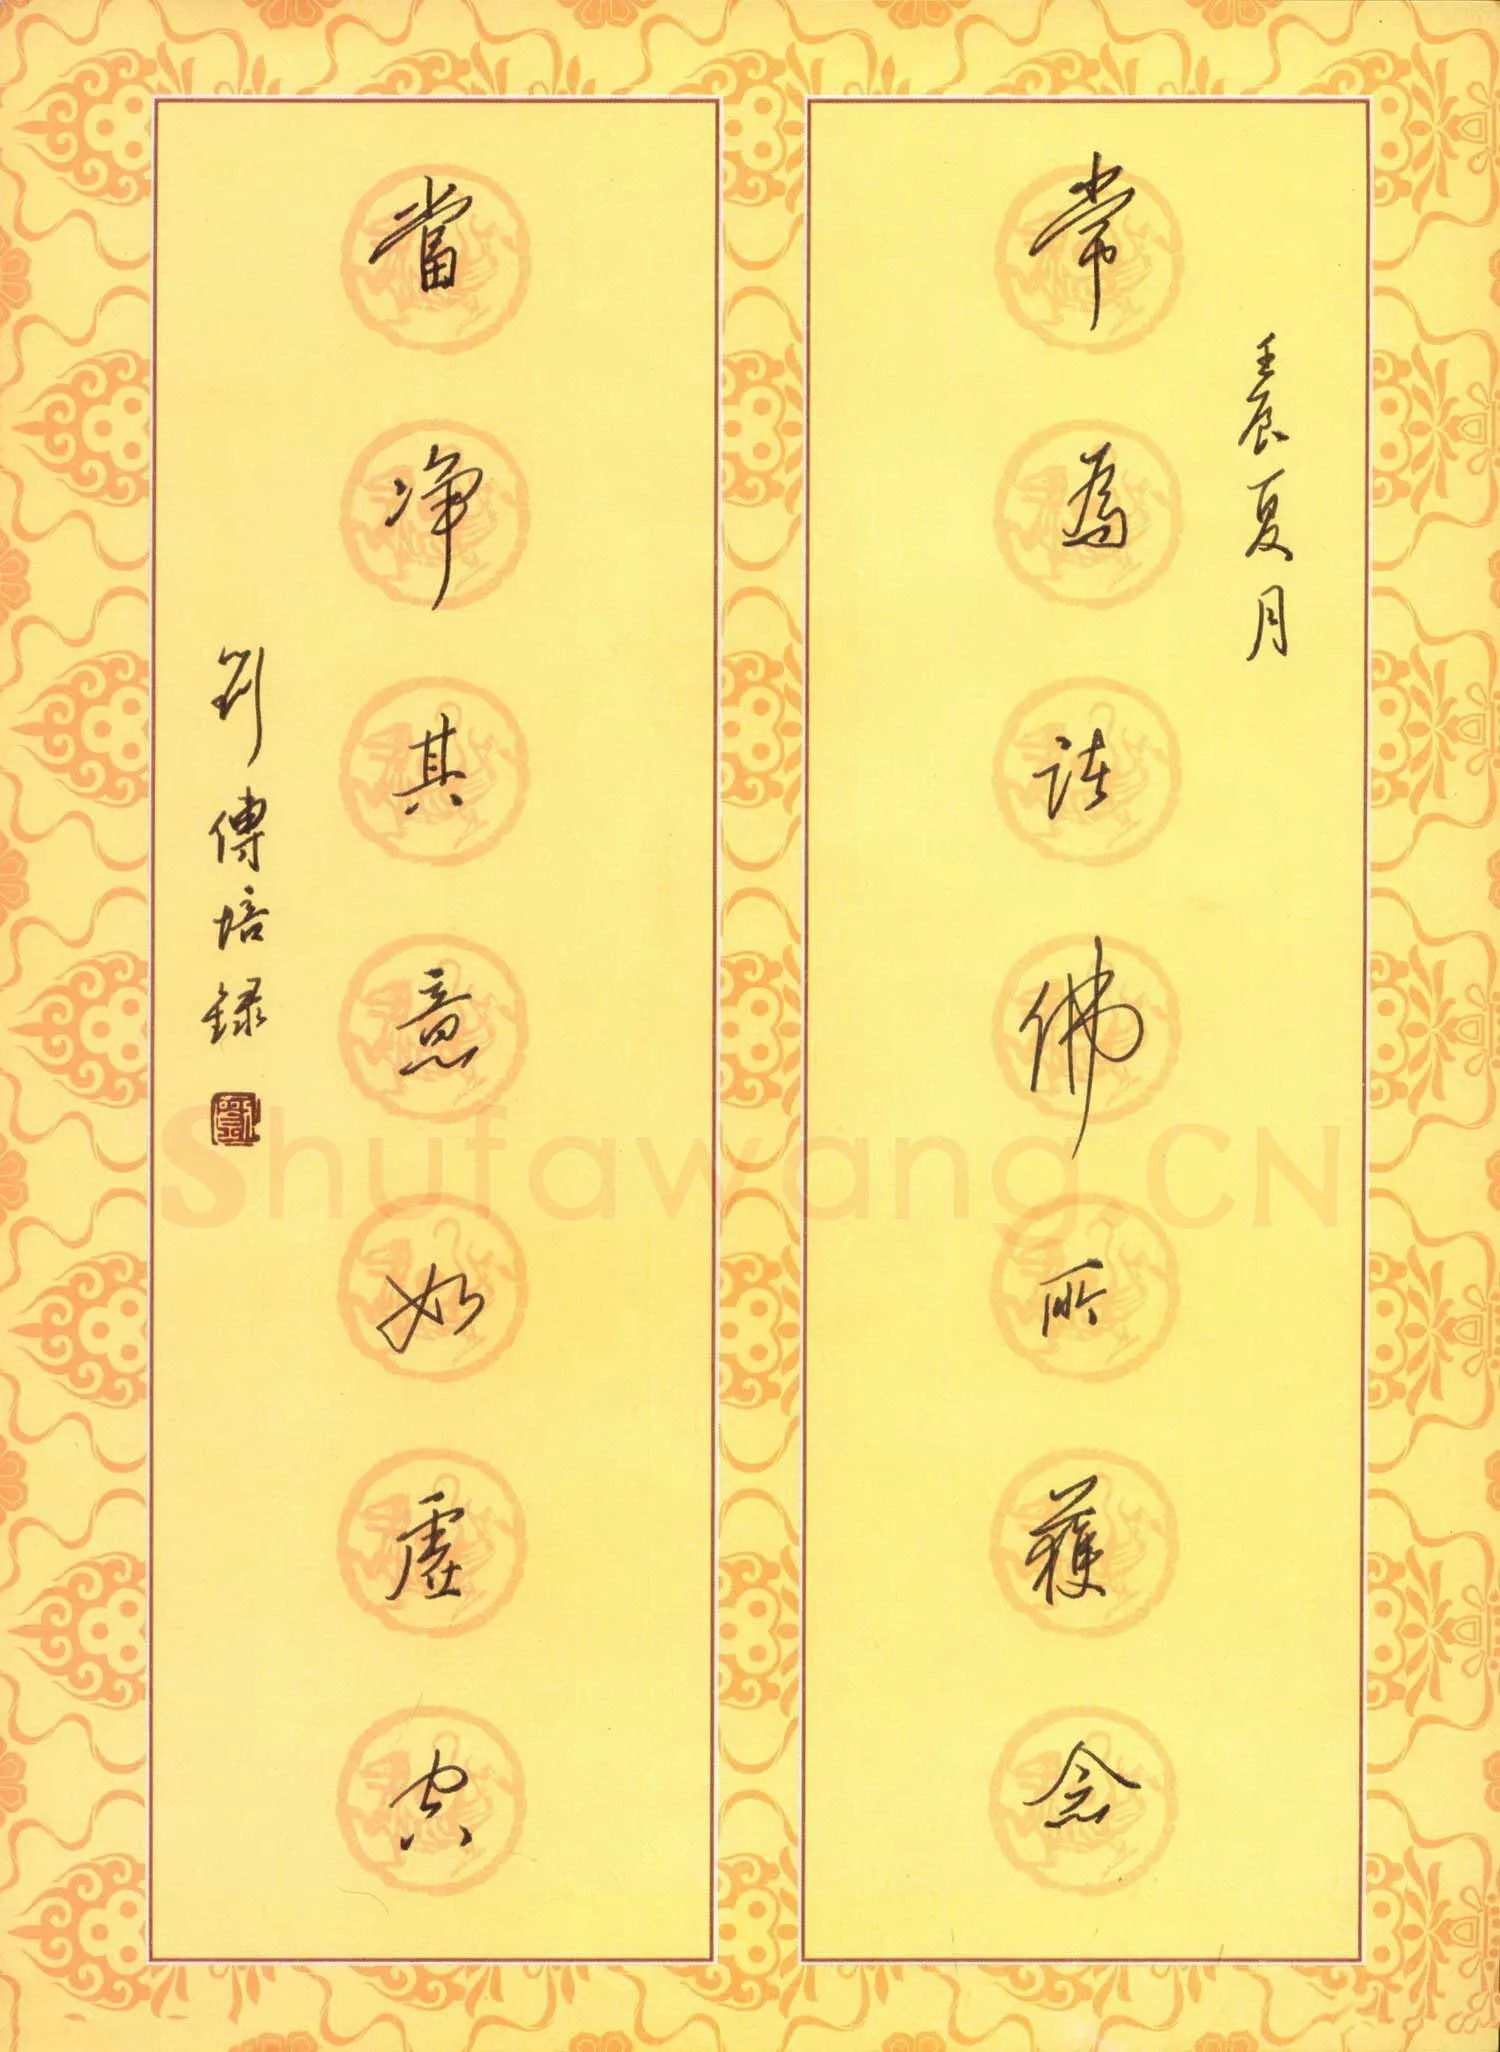 壬辰夏月
常為諸佛所獲念
當净其意如虛空
劉傳培録
劉
Shufawang.CN